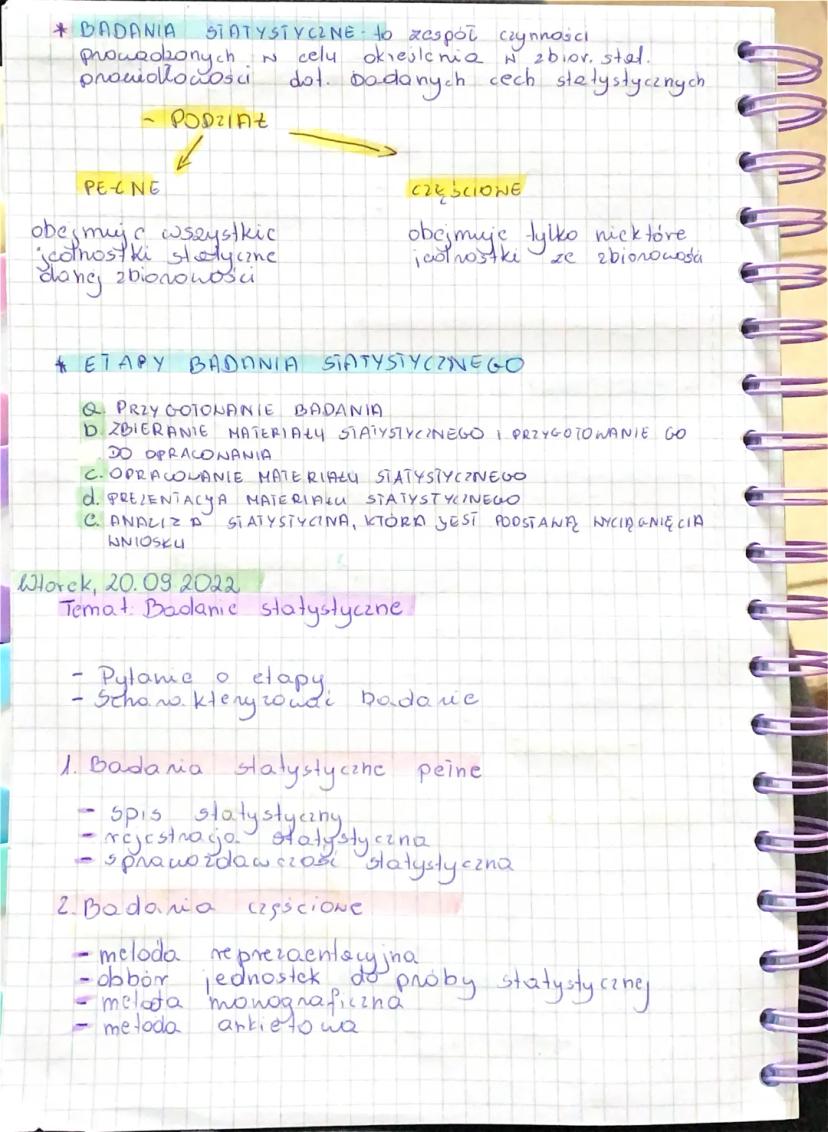 * BADANIA STATYSTYCZNE - to zespół czynności
prowadzonych w celu określenia w zbior. stat.
prawidłowości dot. badanych cech statystycznych
- PODZIAŁ
PEŁNE
CZĘŚCIOWE
obejmuje wszystkie
jednostki statyczne
danej zbiorowości
obejmuje tylko niektóre
jednostki ze zbiorowości
* ETAPY BADANIA STATYSTYCZNEGO
a. PRZYGOTOWANIE BADANIA
b. ZBIERANIE MATERIAŁU STATYSTYCZNEGO I PRZYGOTOWANIE GO
DO OPRACOWANIA
c. OPRACOWANIE MATERIAŁU STATYSTYCZNEGO
d. PREZENTACYA MATERIAŁU STATYSTYCZNEGO
e. ANALIZA STATYSTYCZNA, KTÓRA JEST PODSTAWĄ WYCIĄGNIĘCIA
WNIOSKU
Wtorek, 20.09.2022
Temat: Badanie statystyczne
- Pytanie o etapy
- Scharakteryzować badanie
1. Badania statystyczne pełne
- spis statystyczny
- rejestracja statystyczna
- sprawozdawczość statystyczna
2. Badania częściowe
- metoda reprezaentacyjna
- obbór jednostek do próby statystycznej
- metoda monograficzna
- metoda ankietowa